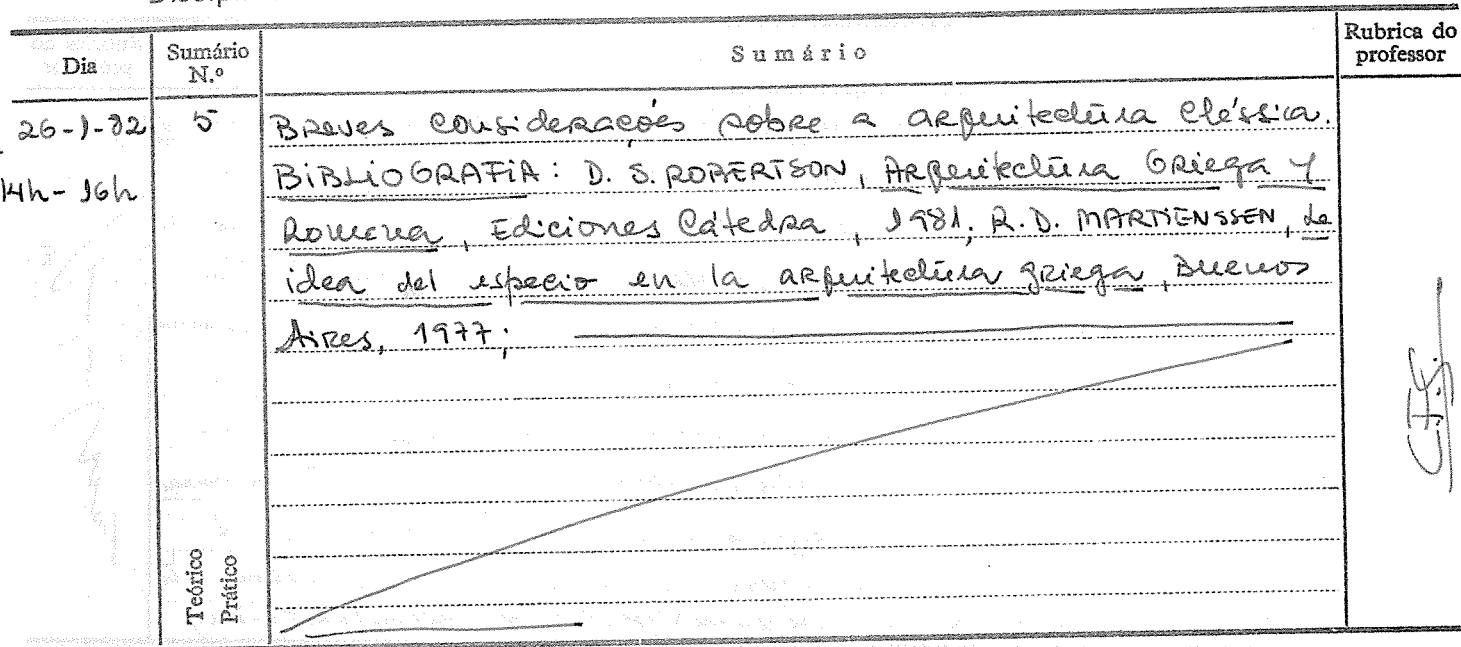 Dia
Sumário N.º
Sumário
Rubrica do professor
26-1-82
14h - 16h
5
Breves considerações sobre a arquitectura clássica.
BIBLIOGRAFIA: D. S. ROBERTSON, Arquitectura Griega y
Romana, Ediciones Cátedra, 1981; R. D. MARTIENSSEN, La
idea del espacio en la arquitectura griega, Buenos
Aires, 1977;
Teórico
Prático